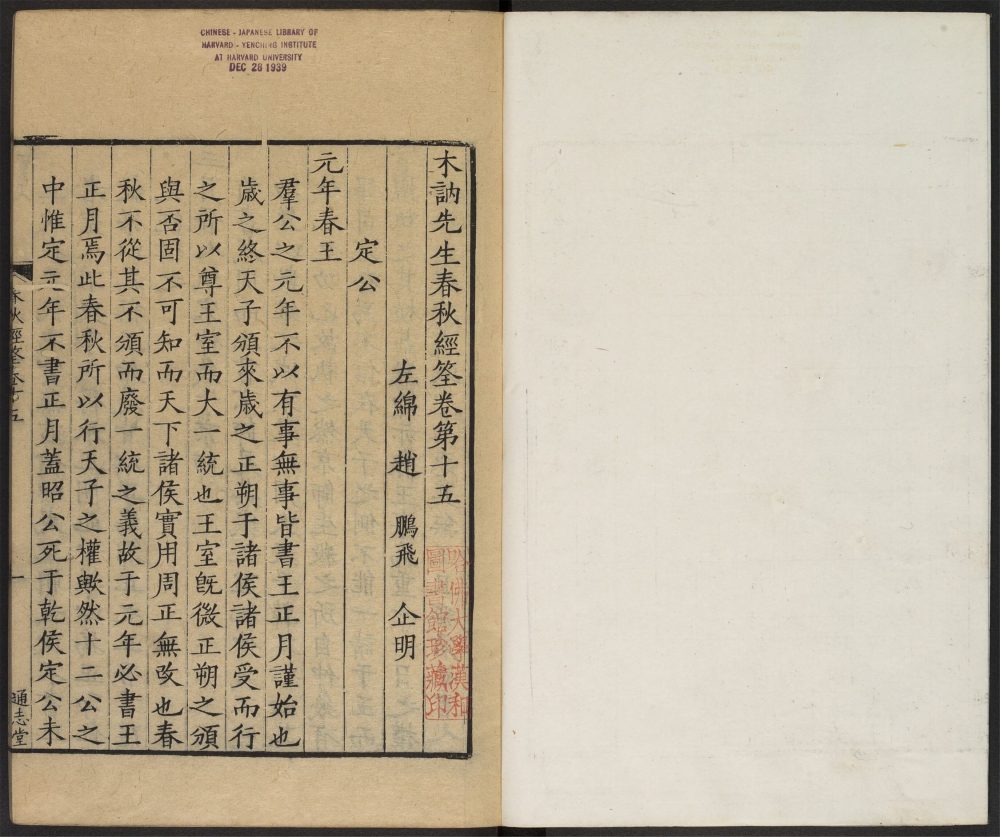 CHINESE - JAPANESE LIBRARY OF
HARVARD - YENCHING INSTITUTE
AT HARVARD UNIVERSITY
DEC 28 1939
木訥先生春秋經筌卷第十五
左綿趙鵬飛企明
定公
元年春王
羣公之元年不以有事無事皆書王正月謹始也
歲之終天子頒來歲之正朔于諸侯諸侯受而行
之所以尊王室而大一統也王室旣微正朔之頒
與否固不可知而天下諸侯實用周正無改也春
秋不從其不頒而廢一統之義故于元年必書王
正月焉此春秋所以行天子之權歟然十二公之
中惟定元年不書正月蓋昭公死于乾侯定公未
春秋經筌卷十五
一
通志堂
哈佛大學漢和
圖書館珍藏印